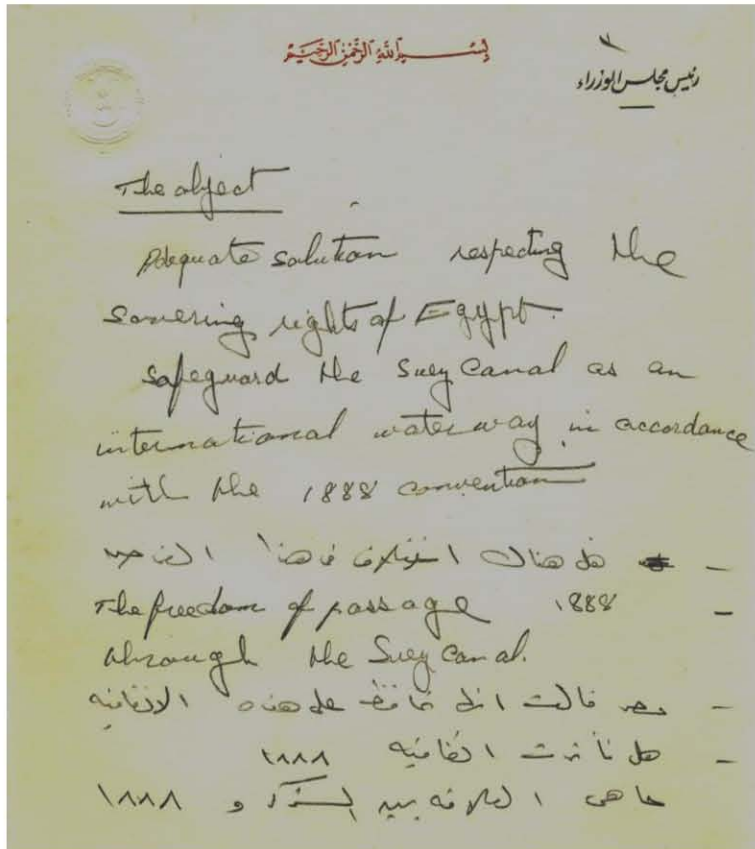 بسم الله الرحمن الرحيم
رئيس مجلس الوزراء
The object
Adequate solution respecting the
sovering rights of Egypt.
Safeguard the Suez Canal as an
international waterway in accordance
with the 1888 convention
- هل هناك اختلاف في هذا
- The freedom of passage 1888
through the Suez Canal.
- مصر قالت انها تحافظ على هذه الاتفاقيه
- هل تأثرت اتفاقيه ١٨٨٨
ما هى العلاقه بين الشركه و ١٨٨٨